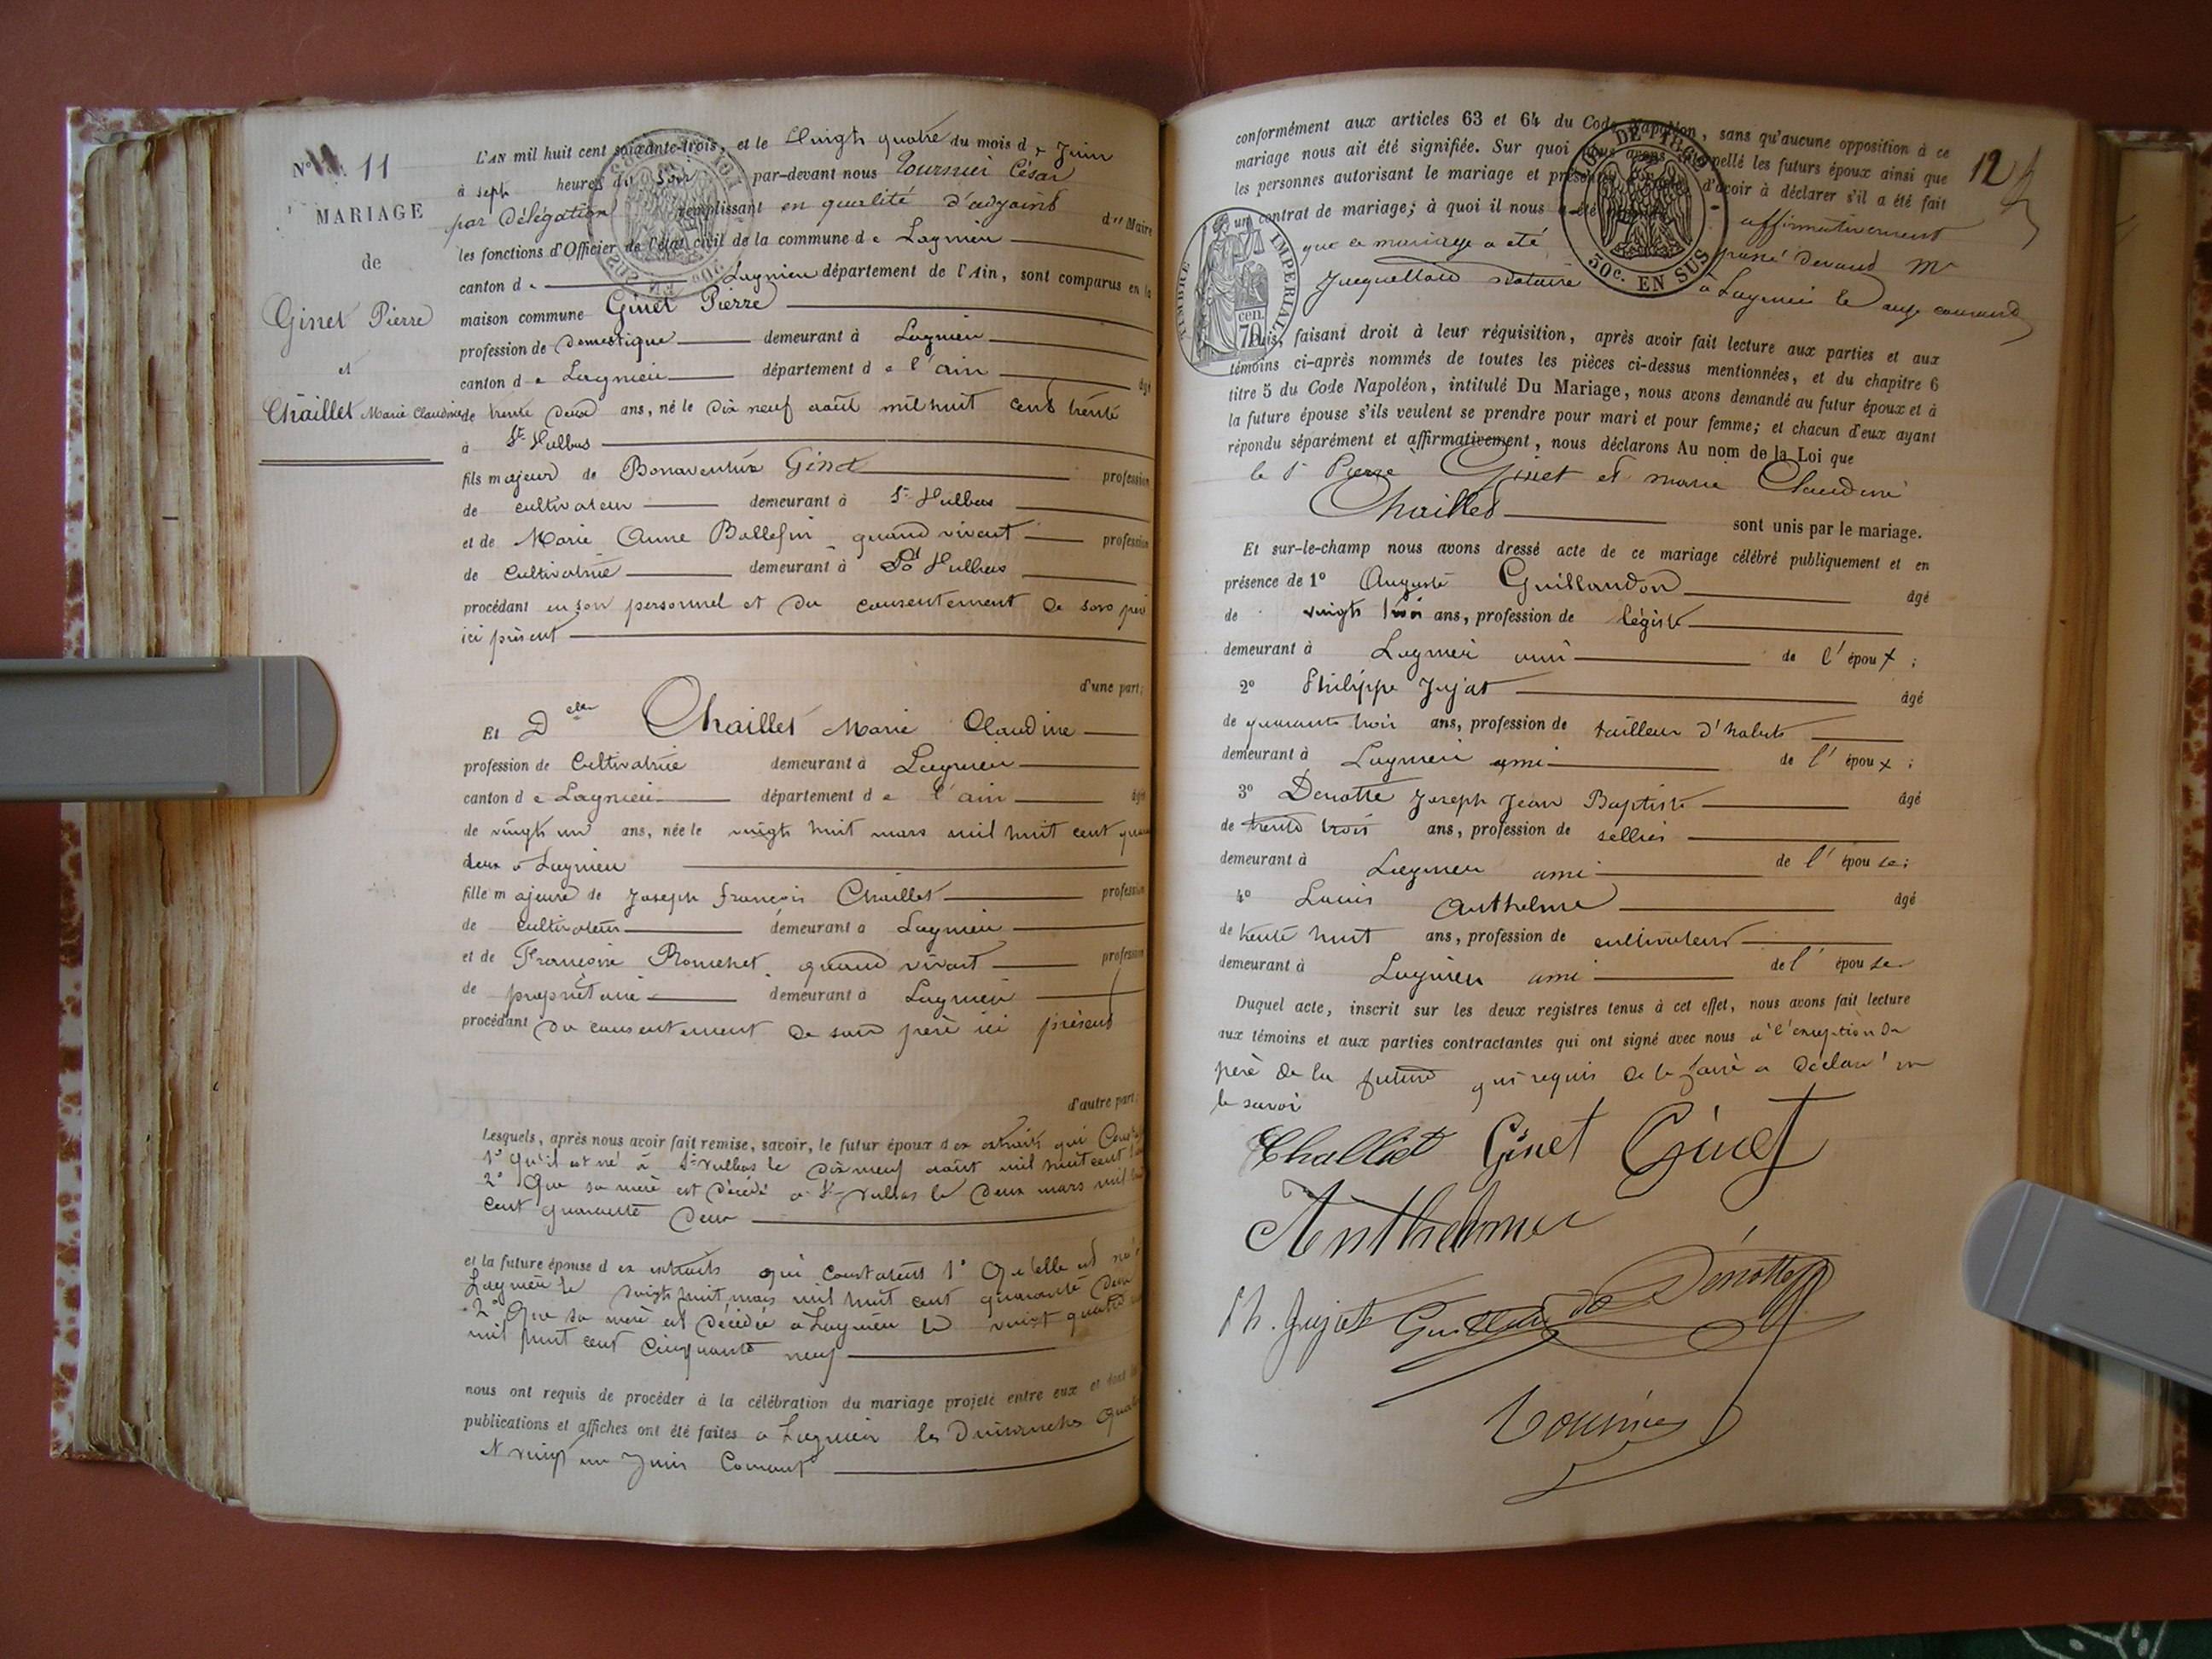 N° 11
MARIAGE
de
Ginet Pierre
et
Chaillet Marie Claudine
L'AN mil huit cent soixante-trois, et le Vingt quatre du mois de Juin
à sept heures du soir par-devant nous Tournier César
par Délégation remplissant en qualité d'adjoint du Maire
les fonctions d'Officier de l'état civil de la commune de Lagnieu
canton de Lagnieu département de l'Ain, sont comparus en la
maison commune Ginet Pierre
profession de Domestique demeurant à Lagnieu
canton de Lagnieu département de l'ain âgé
de trente deux ans, né le dix neuf août mil huit cent trente
à St Vulbas
fils majeur de Bonaventure Ginet profession
de cultivateur demeurant à St Vulbas
et de Marie Anne Ballefin quand vivait profession
de Cultivatrice demeurant à St Vulbas
procédant en son personnel et du consentement de son père
ici présent
d'une part;
Et Delle Chaillet Marie Claudine
profession de Cultivatrice demeurant à Lagnieu
canton de Lagnieu département de l'ain âgée
de vingt un ans, née le vingt huit mars mil huit cent
deux à Lagnieu
fille majeure de Joseph François Chaillet profession
de cultivateur demeurant à Lagnieu
et de Françoise quand vivait profession
de propriétaire demeurant à Lagnieu
procédant du consentement de son père ici présent
d'autre part;
Lesquels, après nous avoir fait remise, savoir, le futur époux des extraits qui
1° Qu'il est né à St Vulbas le Dix neuf août mil huit cent
2° Que sa mère est décédé à St Vulbas le Deux mars mil
cent quarante Deux
et la future épouse des extraits qui constatent 1° Qu'elle est née
Lagnieu le vingt huit mars mil huit cent quarante Deux
2° Que sa mère est décédée à Lagnieu le vingt quatre
mil huit cent cinquante neuf
nous ont requis de procéder à la célébration du mariage projeté entre eux et dont les
publications et affiches ont été faites à Lagnieu les Dimanches
et vingt un Juin Courant
12
conformément aux articles 63 et 64 du Code Napoléon, sans qu'aucune opposition à ce
mariage nous ait été signifiée. Sur quoi nous avons interpellé les futurs époux ainsi que
les personnes autorisant le mariage et présentes d'avoir à déclarer s'il a été fait
un contrat de mariage; à quoi il nous a été affirmativement
que ce mariage a été passé devant Me
Jacquelland Notaire à Lagnieu le onze courant
TIMBRE IMPERIAL
70 cen.
DE 1862
50c. EN SUS
Puis, faisant droit à leur réquisition, après avoir fait lecture aux parties et aux
témoins ci-après nommés de toutes les pièces ci-dessus mentionnées, et du chapitre 6
titre 5 du Code Napoléon, intitulé Du Mariage, nous avons demandé au futur époux et à
la future épouse s'ils veulent se prendre pour mari et pour femme; et chacun d'eux ayant
répondu séparément et affirmativement, nous déclarons Au nom de la Loi que
le Sr Pierre Ginet et marie Claudine
Chaillet sont unis par le mariage.
Et sur-le-champ nous avons dressé acte de ce mariage célébré publiquement et en
présence de 1° Auguste Guillandon âgé
de vingt trois ans, profession de légiste
demeurant à Lagnieu ami de l'époux;
2° Philippe Jujat âgé
de quarante trois ans, profession de tailleur d'habits
demeurant à Lagnieu ami de l'époux;
3° Denotte Joseph Jean Baptiste âgé
de trente trois ans, profession de sellier
demeurant à Lagnieu ami de l'épouse;
4° Louis Anthelme âgé
de trente huit ans, profession de cultivateur
demeurant à Lagnieu ami de l'épouse
Duquel acte, inscrit sur les deux registres tenus à cet effet, nous avons fait lecture
aux témoins et aux parties contractantes qui ont signé avec nous à l'exception du
père de la future qui requis de le faire a déclaré ne
le savoir
Challiet Ginet Ginet
Anthelme
Ph. Jujat Denotte
Tournier